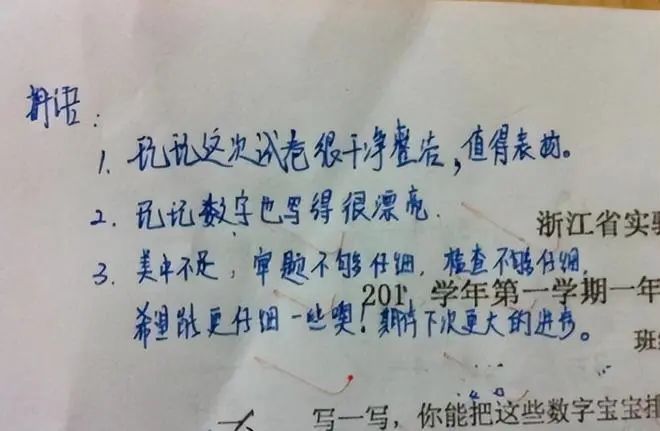 寄语：
1. 玩玩这次试卷很干净整洁，值得表扬。
2. 玩玩数字也写得很漂亮.
3. 美中不足，审题不够仔细，检查不够仔细，
希望能更仔细一些噢！期待下次更大的进步。
浙江省实
201 学年第一学期一年
班
写一写，你能把这些数字宝宝排